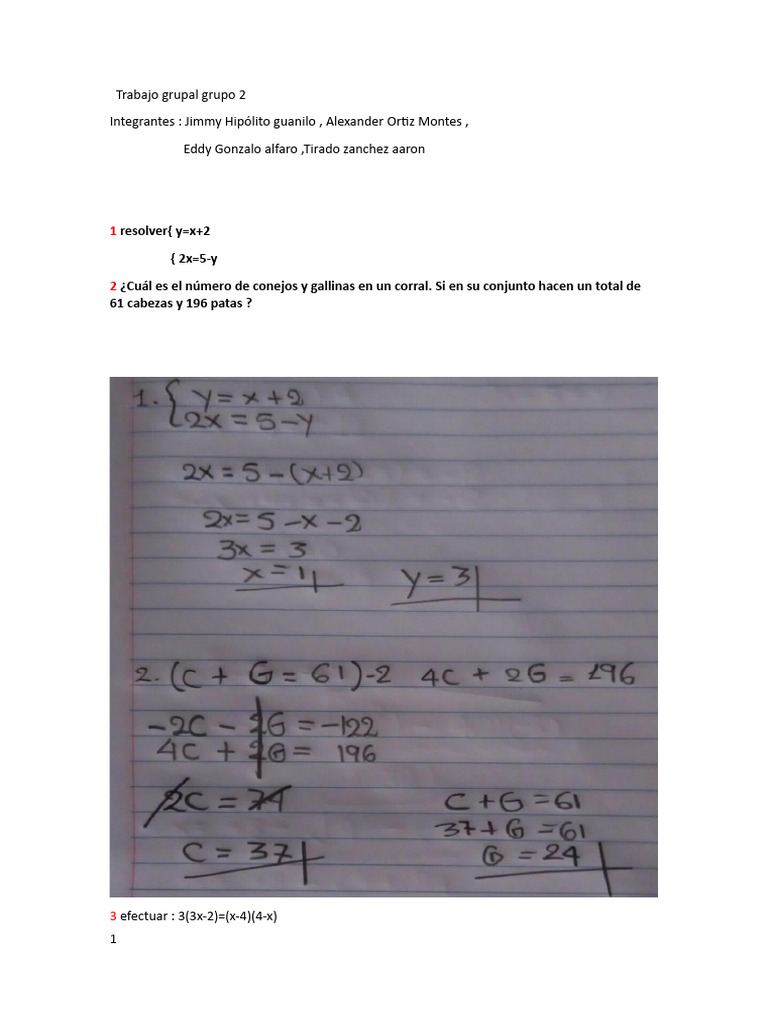 Trabajo grupal grupo 2
Integrantes : Jimmy Hipólito guanilo , Alexander Ortiz Montes ,
Eddy Gonzalo alfaro ,Tirado zanchez aaron
1 resolver{ y=x+2
{ 2x=5-y
2 ¿Cuál es el número de conejos y gallinas en un corral. Si en su conjunto hacen un total de
61 cabezas y 196 patas ?
1. { y = x + 2
2x = 5 - y
2x = 5 - (x+2)
2x = 5 - x - 2
3x = 3
x = 1 y = 3
2. (C + G = 61) -2 4C + 2G = 196
-2C - 2G = -122
4C + 2G = 196
2C = 74 C + G = 61
37 + G = 61
C = 37 G = 24
3 efectuar : 3(3x-2)=(x-4)(4-x)
1